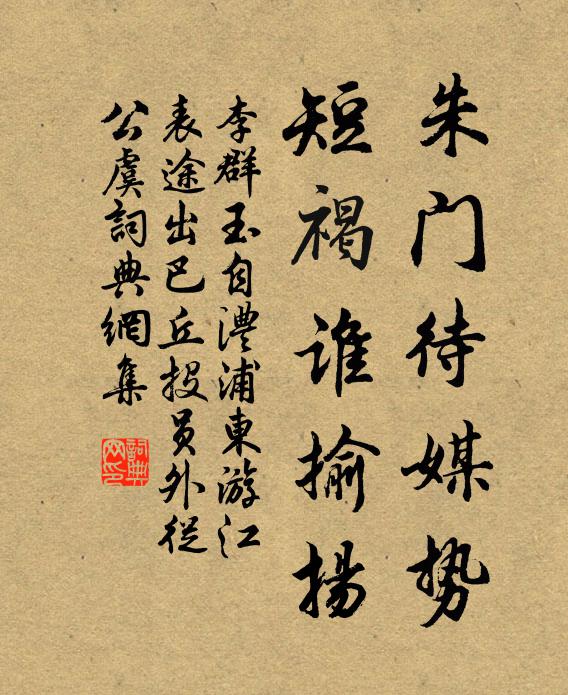 朱门待媒势
短褐谁揄揚
李群玉自澧浦東游江
表途出巴丘投员外從
公虞詞典網集
詞典
网印